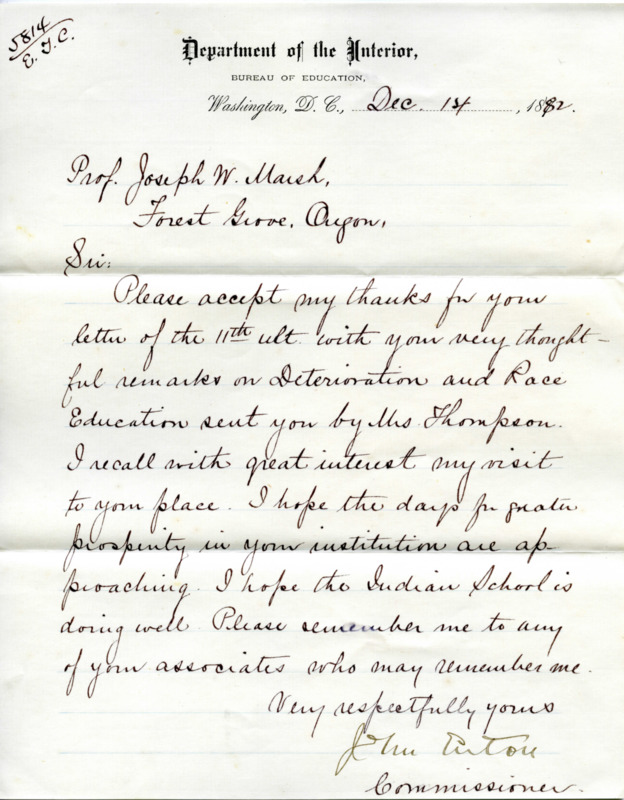 5814
E. T. C.
Department of the Interior,
BUREAU OF EDUCATION,
Washington, D. C., Dec. 14, 1882.
Prof. Joseph W. Marsh,
Forest Grove, Oregon,
Sir:
Please accept my thanks for your
letter of the 11th ult. with your very thought-
ful remarks on Deterioration and Race
Education sent you by Mrs. Thompson.
I recall with great interest my visit
to your place. I hope the days for greater
prosperity in your institution are ap-
proaching. I hope the Indian School is
doing well. Please remember me to any
of your associates who may remember me.
Very respectfully yours
John Eaton
Commissioner.